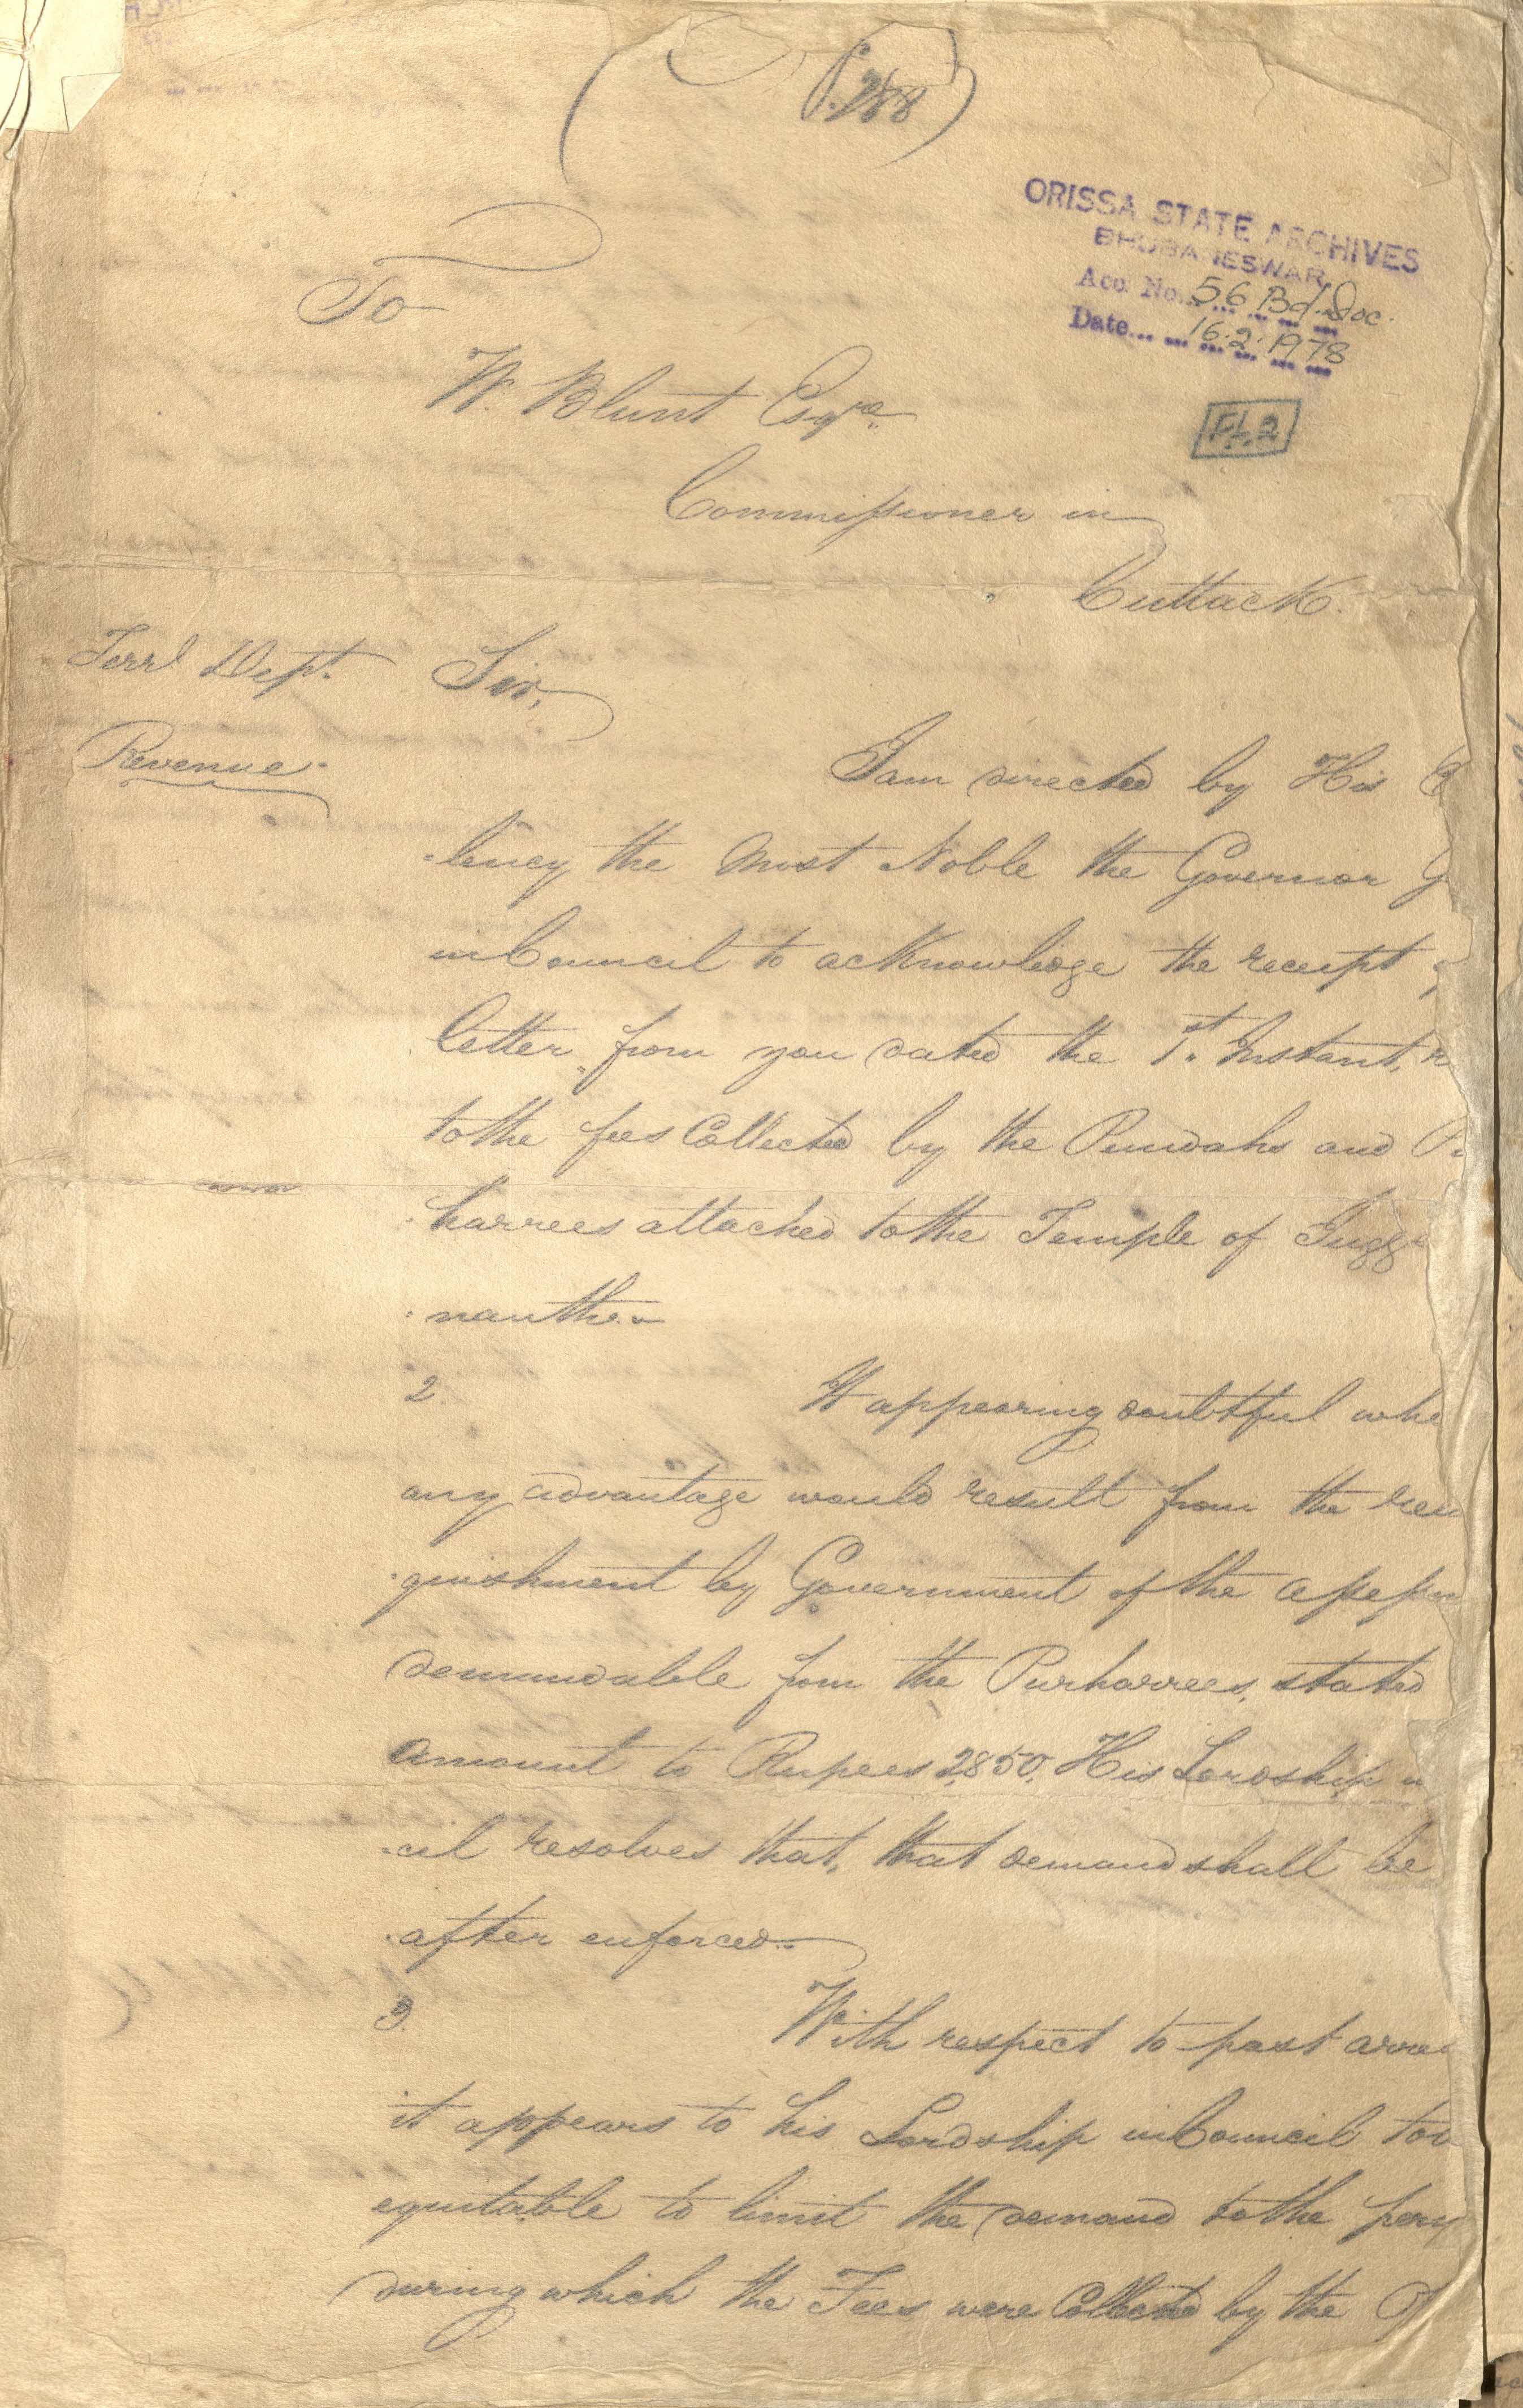 (P.288)
ORISSA STATE ARCHIVES
BHUBANESWAR.
Acc. No. 56 Bd. Doc.
Date... 16.2.1978
Fl.2
To
W. Blunt Esqre
Commissioner in
Cuttack.
Terrl Dept. Sir,
Revenue.
I am directed by His E
-lency the most Noble the Governor G
in Council to acknowledge the receipt
letter from you dated the 1st Instant,
to the fees Collected by the Pundahs and
harrees attached to the Temple of Jugg
nauth.
2. It appearing doubtful whe
any advantage would result from the
quishment by Government of the assess
demandable from the Purharrees, stated
amount to Rupees 2,850, His Lordship
-cil resolves that, that demand shall be
after enforced.
3. With respect to past arrea
it appears to his Lordship in Council to
equitable to limit the demand to the
during which the Fees were Collected by the P